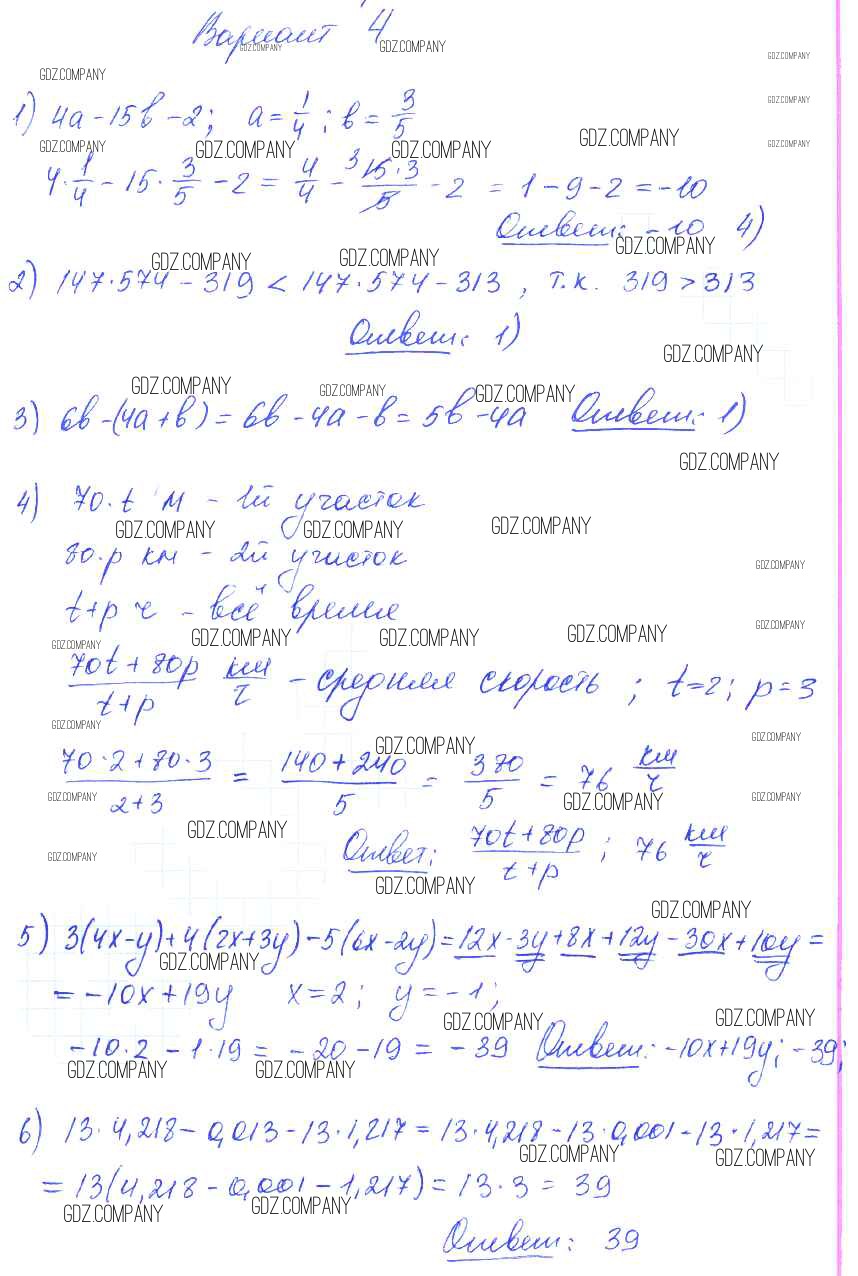 Вариант 4
1) 4a - 15b - 2; a = 1/4; b = 3/5
4·1/4 - 15·3/5 - 2 = 4/4 - 15·3/5 - 2 = 1 - 9 - 2 = -10
Ответ: -10 4)
2) 147·574 - 319 < 147·574 - 313, т.к. 319 > 313
Ответ: 1)
3) 6b - (4a + b) = 6b - 4a - b = 5b - 4a Ответ: 1)
4) 70·t м - 1й участок
80·p км - 2й участок
t+p ч - всё время
70t + 80p / t+p км/ч - средняя скорость; t=2; p=3
70·2 + 80·3 / 2+3 = 140 + 240 / 5 = 380/5 = 76 км/ч
Ответ: 70t + 80p / t+p; 76 км/ч
5) 3(4x-y)+4(2x+3y)-5(6x-2y)=12x-3y+8x+12y-30x+10y=
= -10x+19y x=2; y=-1;
-10·2 - 1·19 = -20 - 19 = -39 Ответ: -10x+19y; -39;
6) 13·4,218 - 0,013 - 13·1,217 = 13·4,218 - 13·0,001 - 13·1,217 =
= 13(4,218 - 0,001 - 1,217) = 13·3 = 39
Ответ: 39
GDZ.COMPANY